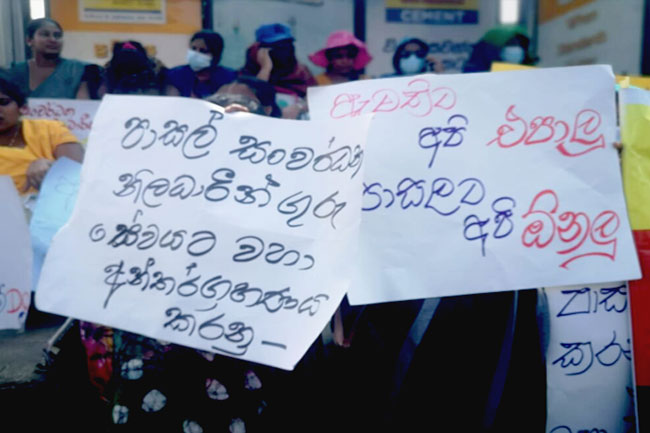 CEMENT
පාසල් සංවර්ධන
නිලධාරීන් ගුරු
සේවයට වහා
අන්තර්ග්‍රහණය
කරනු –
ඇමතිට
අපි එපාලු
පාසලට
අපි ඕනලු
පාස
කර